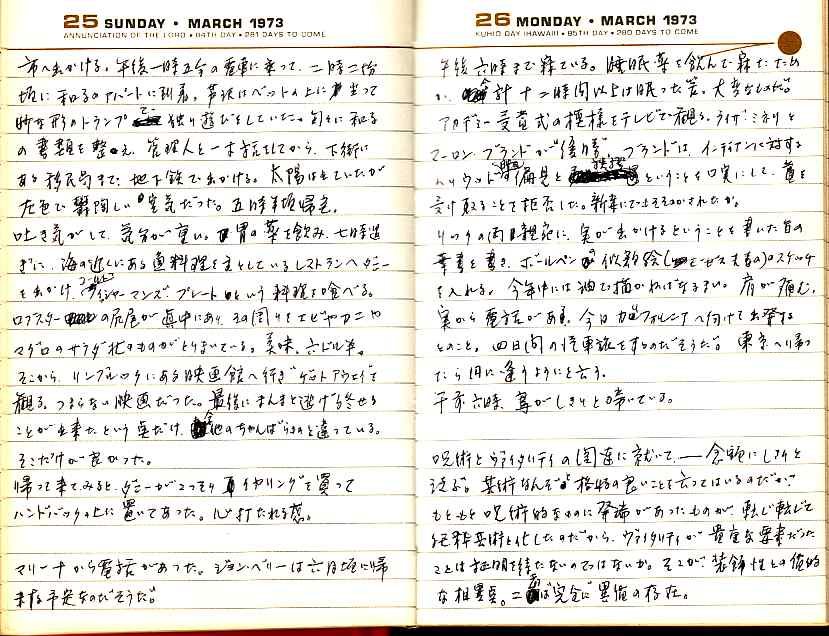 25 SUNDAY • MARCH 1973
ANNUNCIATION OF THE LORD • 84TH DAY • 281 DAYS TO COME
市へ出かける。午後一時五分の電車に乗って、二時二十分
頃に和るのアパートに到着。芦沢はベットの上に坐って
妙な形のトランプで独り遊びをしていた。
の書類を整え、管理人と一本話をしてから、下街に
ある移民局まで、地下鉄で出かける。太陽は出ていたが
灰色で鬱陶しい空気だった。五時半頃帰宅。
吐き気がして、気分が重い。胃の薬を飲み、七時過
ぎに、海の近くにある魚料理を主としているレストランへダニー
と出かけ、フィッシャーマンズ・プレートという料理を食べる。
ロブスターの尻尾が真中にあり、その周りをエビやカニや
マグロのサラダ状のものがとりまいている。美味、六ドル半。
そこから、リンブルックにある映画館へ行き"ゲットアウェイ"を
観る。つまらない映画だった。最後にまんまと逃げ終せる
ことが出来たという点だけ、他のちゃんばらものと違っている。
そこだけが良かった。
帰って来てみると、ダニーがこっそりイヤリングを買って
ハンドバックの上に置いてあった。心打たれる感。
マリーナから電話があった。ジョン・ペリーは六月頃に帰
来る予定なのだそうだ。
26 MONDAY • MARCH 1973
KUHIO DAY (HAWAII) • 85TH DAY • 280 DAYS TO COME
午後六時まで寝ている。睡眠薬を飲んで寝たため
か、合計十二時間以上は眠った筈。大変なものだ。
アカデミー受賞式の模様をテレビで観る。ライザ・ミネリと
マーロン・ブランドが優勝。ブランドは、インディアンに対する
ハリウッド映画の偏見ということを口実にして、賞を
受け取ることを拒否した。
リックの両親宛に、実が出かけるということを書いた旨の
葉書を書き、ボールペンで似顔絵のスケッチ
を入れる。今年中には油で描かねばなるまい。肩が痛む。
実から電話があり、今日カリフォルニアへ向けて出発する
とのこと。四日間の汽車旅をするのだそうだ。東京へ帰っ
たら円に逢うようにと云う。
午前六時、鳥がしきりと啼いている。
呪術とヴァイタリティの関連に就いて、――念頭にしきりと
浮ぶ。芸術なんぞと格好の良いことを云ってはいるのだが、
もともと呪術的なものに発端があったものが、転じ転じて
純粋芸術と化したのだから、ヴァイタリティが貴重な要素だった
ことは証明を待たないのではないか。そこが、装飾性との価値的
な相異点。二つは完全に異質の存在。